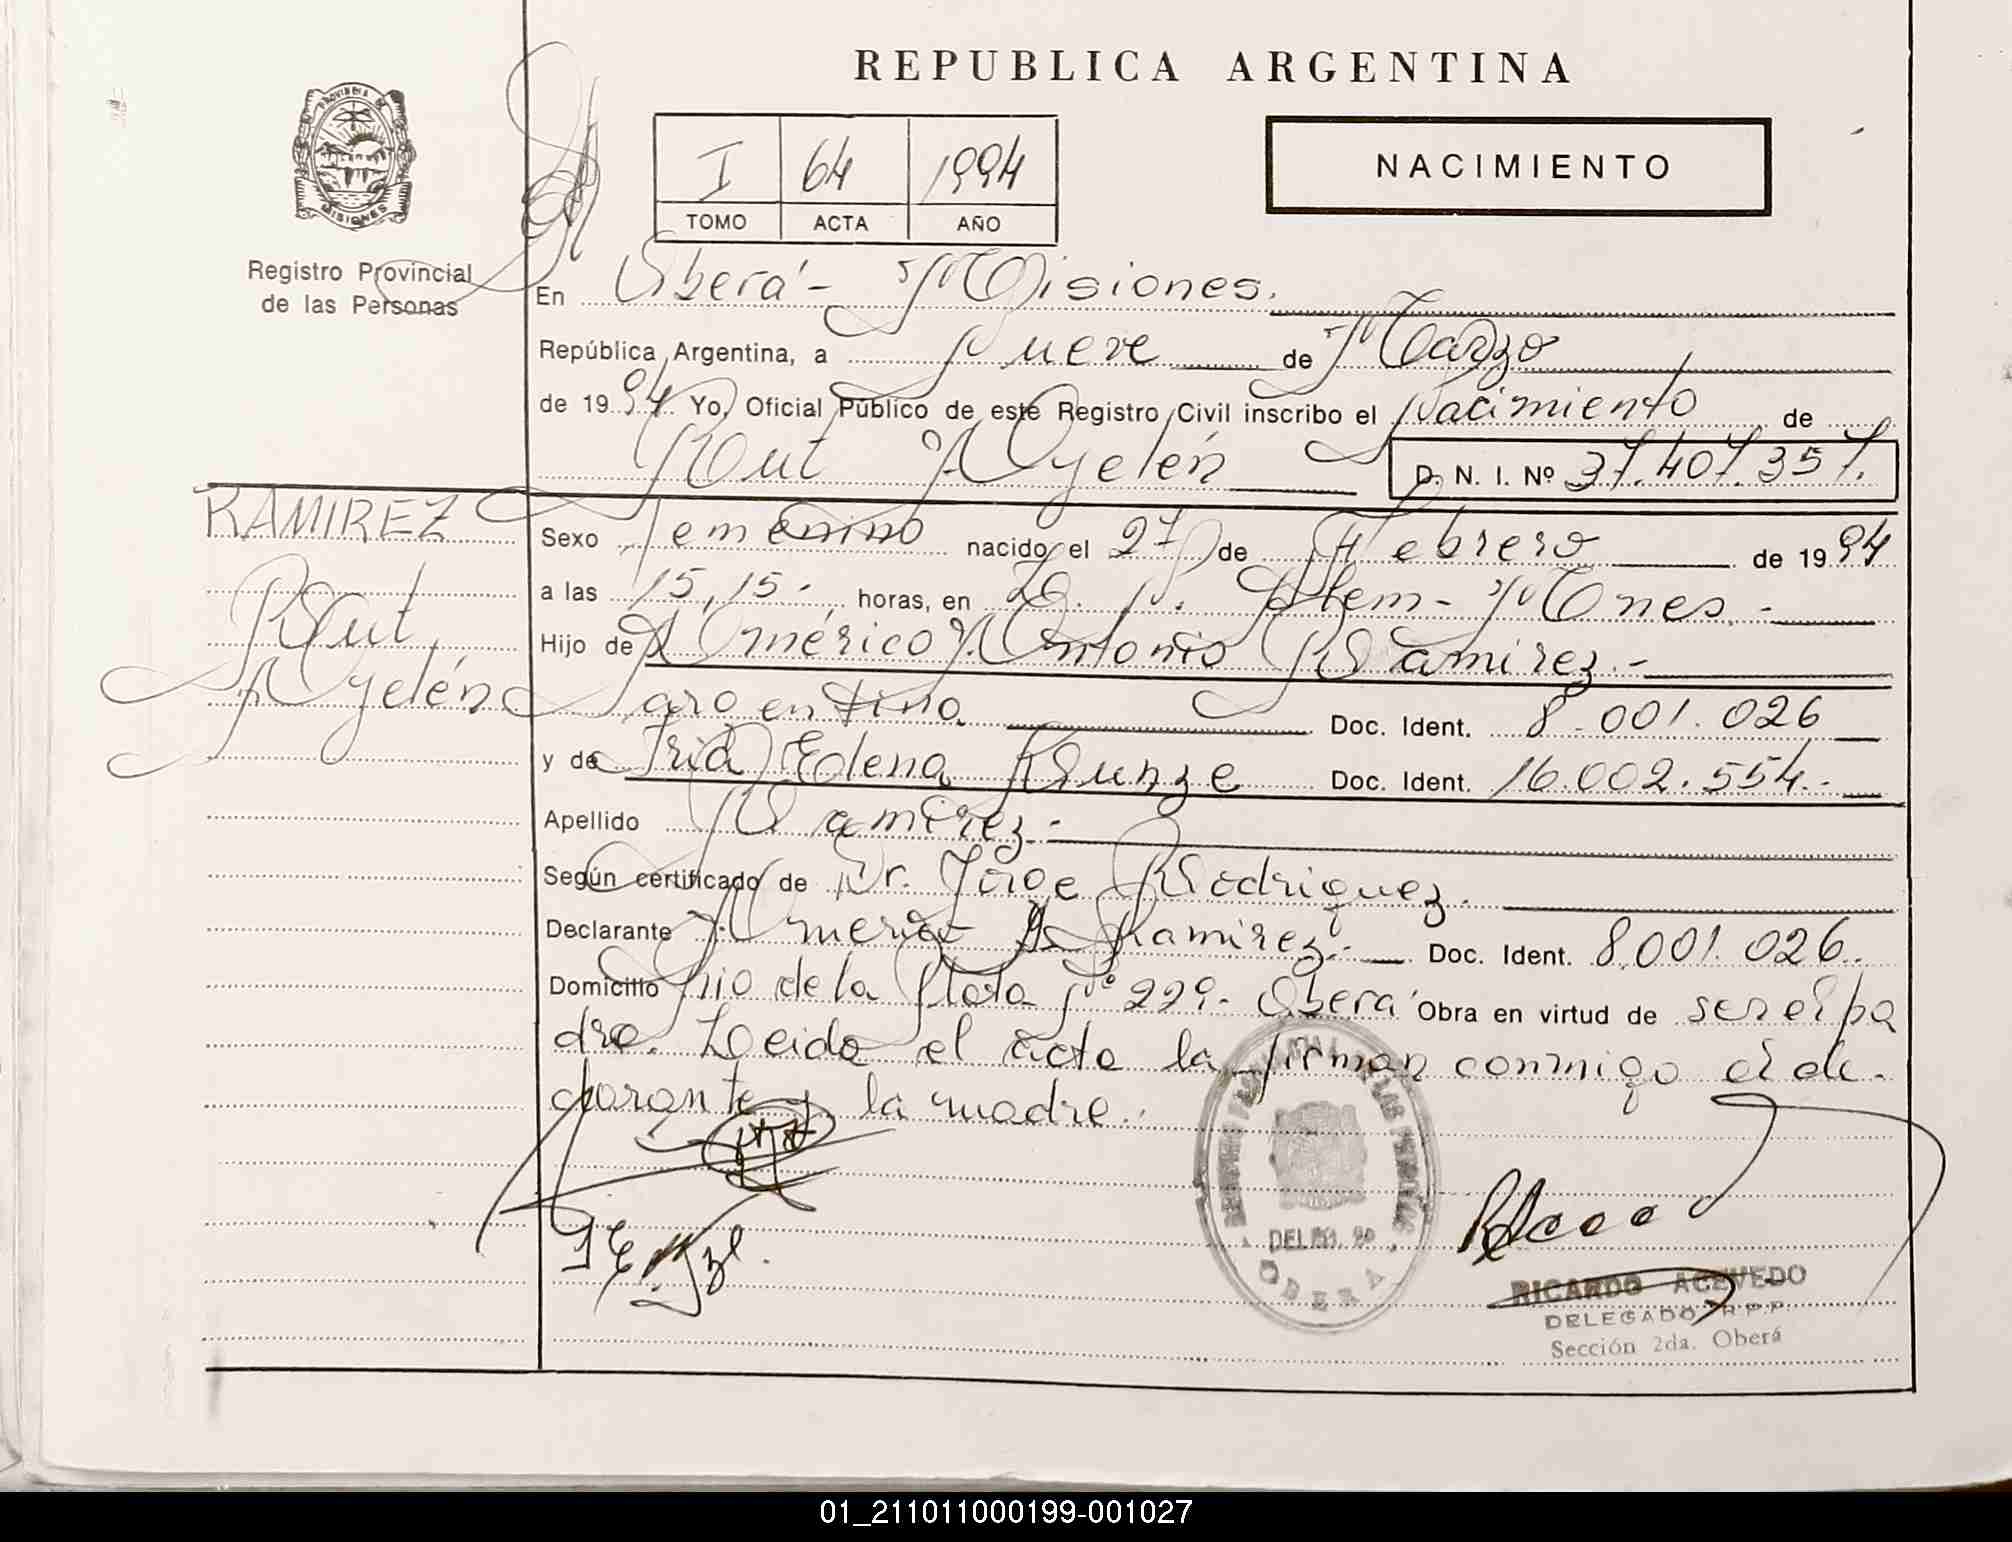 REPUBLICA ARGENTINA
PROVINCIA DE
MISIONES
Registro Provincial
de las Personas
I 64 1994
TOMO ACTA AÑO
NACIMIENTO
En Oberá - Misiones.
República Argentina, a Nueve de Marzo
de 1994 Yo, Oficial Público de este Registro Civil inscribo el Nacimiento de
Rut Ayelén D. N. I. Nº 37.407.357.
RAMIREZ
Rut
Ayelén
Sexo Femenino nacido el 27 de Febrero de 1994
a las 15,15.- horas, en L. N. Alem - Mnes. -
Hijo de Américo Antonio Ramirez.-
argentino Doc. Ident. 8.001.026
y de Iria Elena Kunze Doc. Ident. 16.002.554.-
Apellido Ramirez -
Según certificado de Dr. Jorge Rodriguez.
Declarante Americo A. Ramirez.- Doc. Ident. 8.001.026.
Domicilio Rio de la Plata Nº 229- Oberá Obra en virtud de ser el pa
dre. Leida el acta la firman conmigo el de-
clarante y la madre.
DELEG.
OBERA
RICARDO ACEVEDO
DELEGADO R.P.P.
Sección 2da. Oberá
01_211011000199-001027